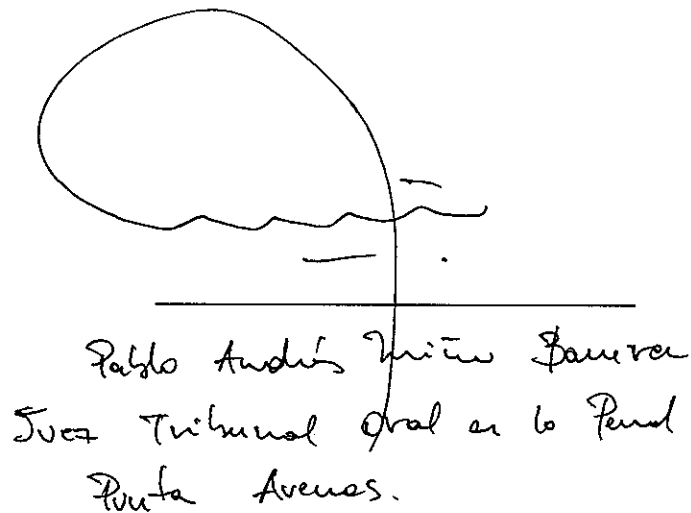 Pablo Andrés Miño Barrera
Juez Tribunal Oral en lo Penal
Punta Arenas.